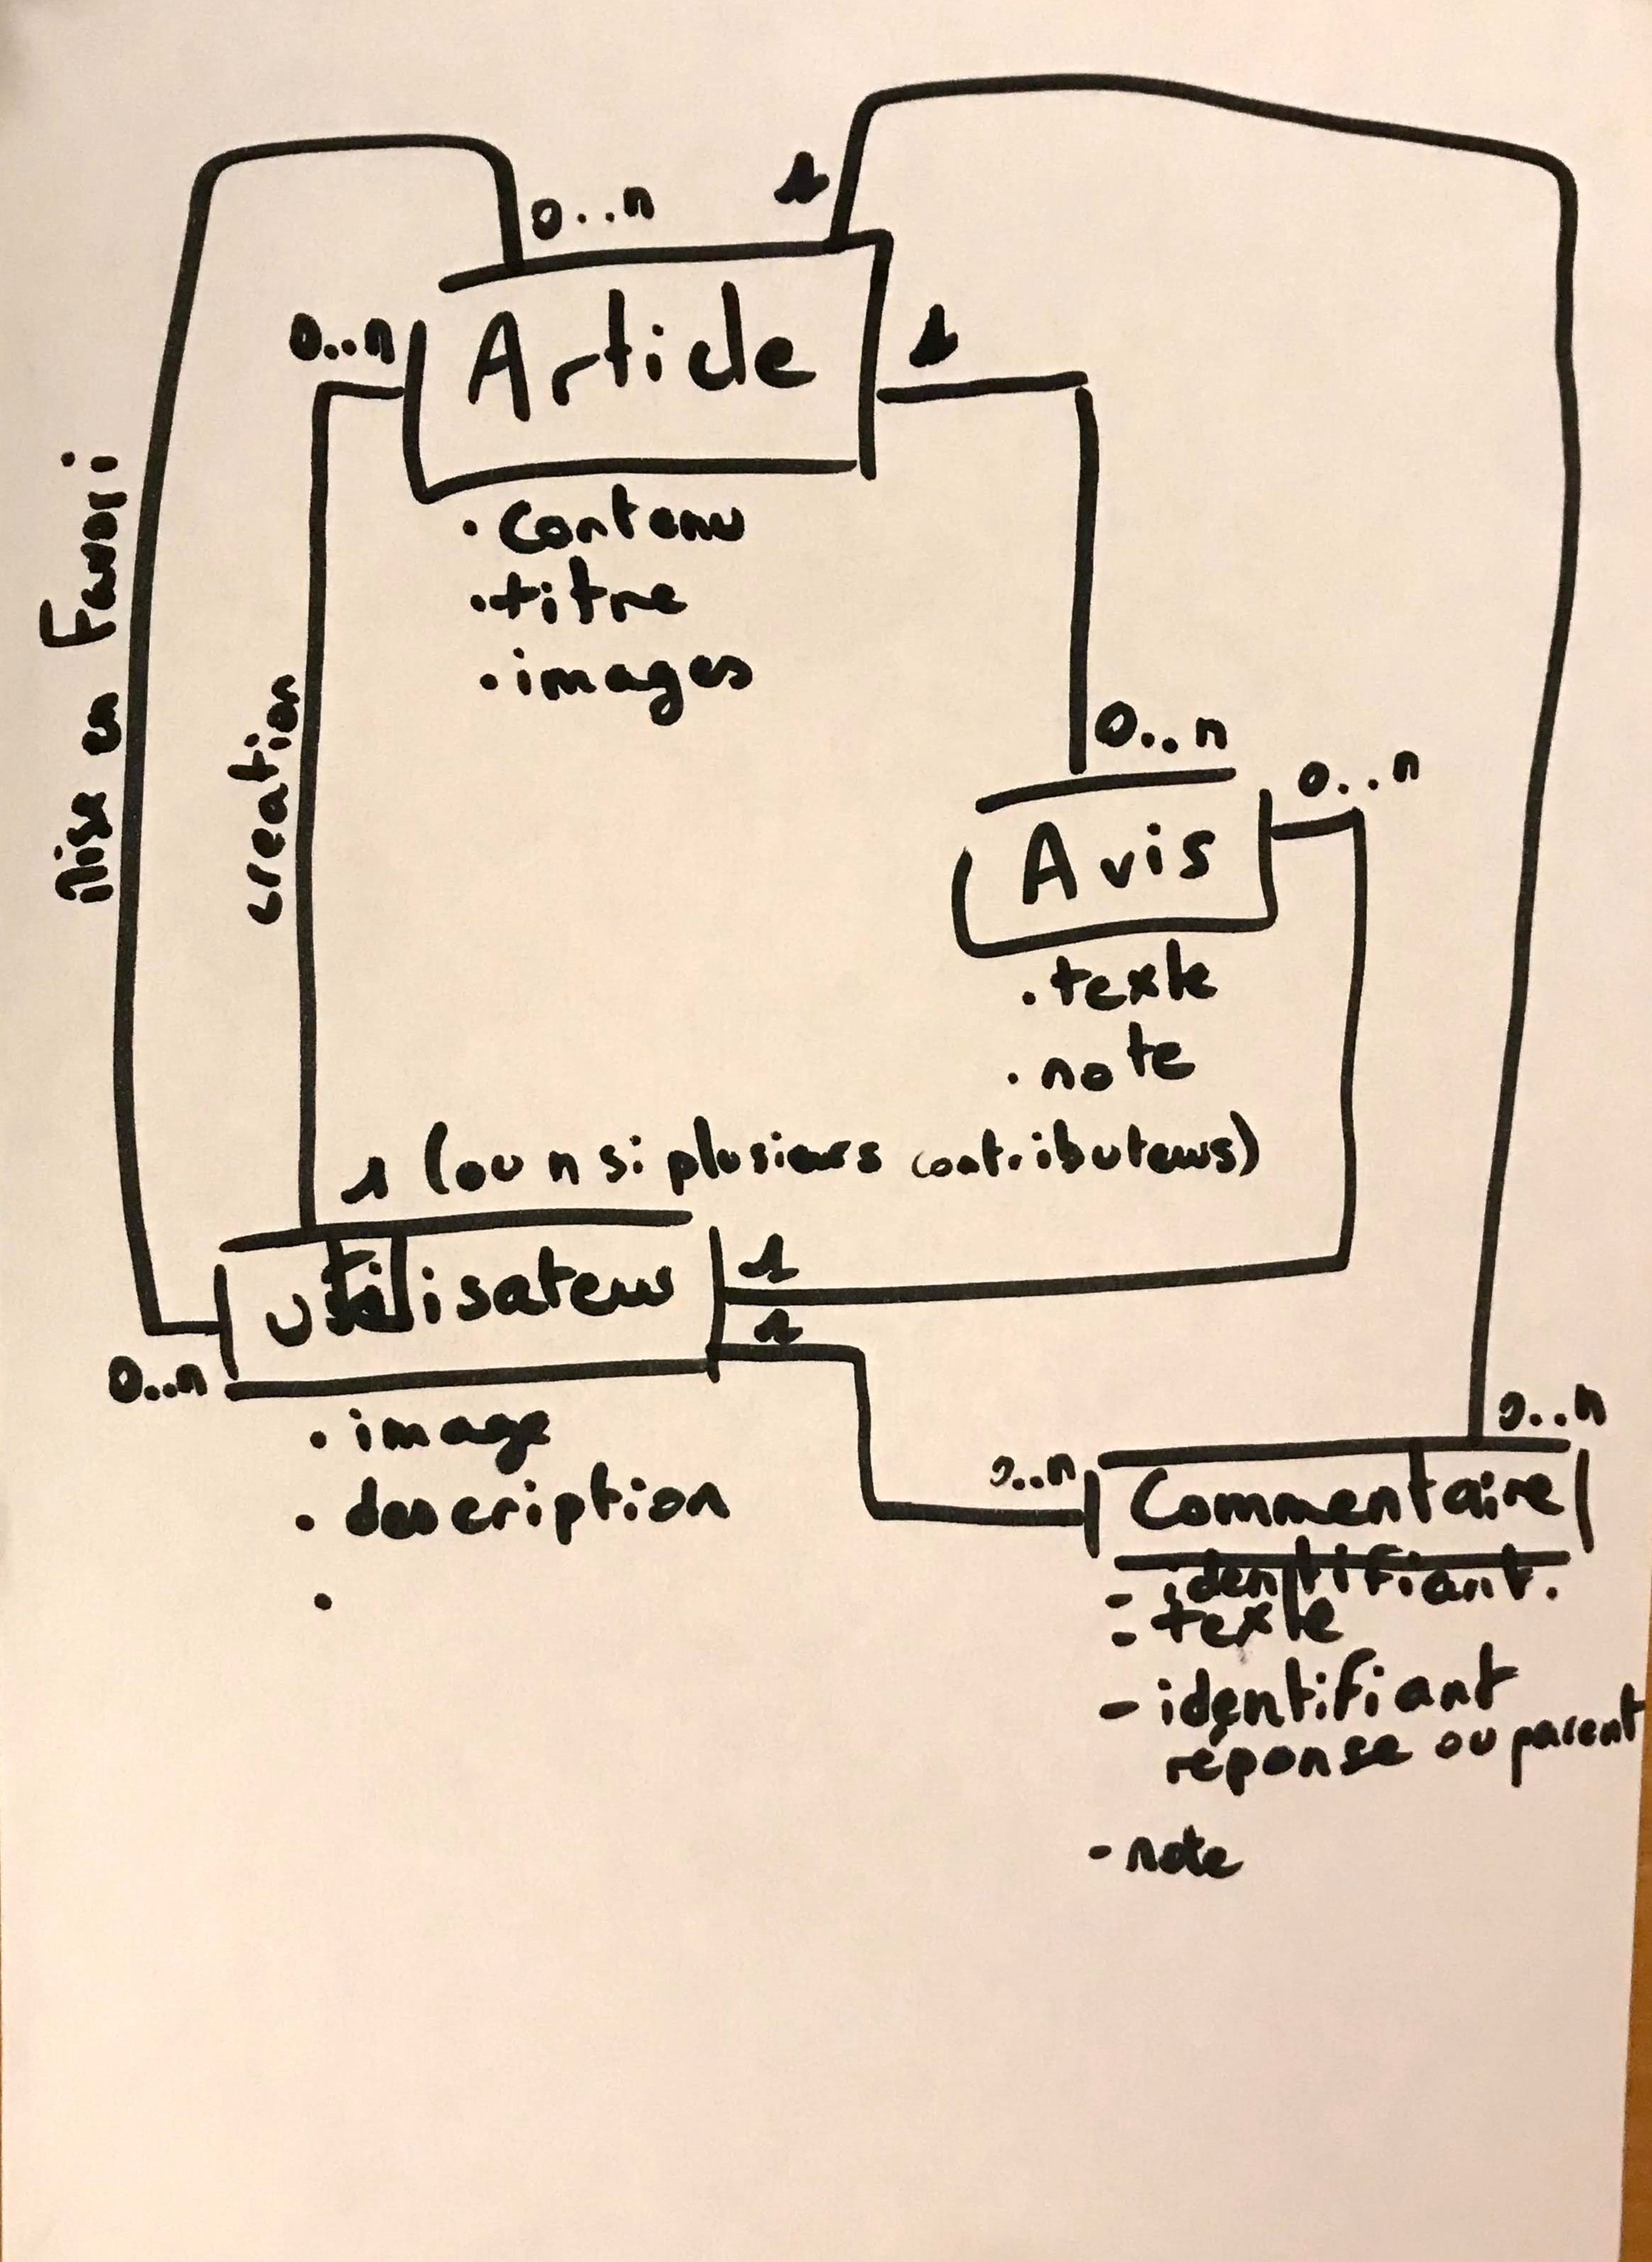 0..n
1
0..n
Article
1
. contenu
. titre
. images
Mise en Favori
creation
0..n
0..n
Avis
. texte
. note
1 (ou n si plusieurs contributeurs)
utilisateur
1
1
0..n
. image
. description
.
0..n
0..n
Commentaire
- identifiant.
- texte
- identifiant
réponse ou parent
- note